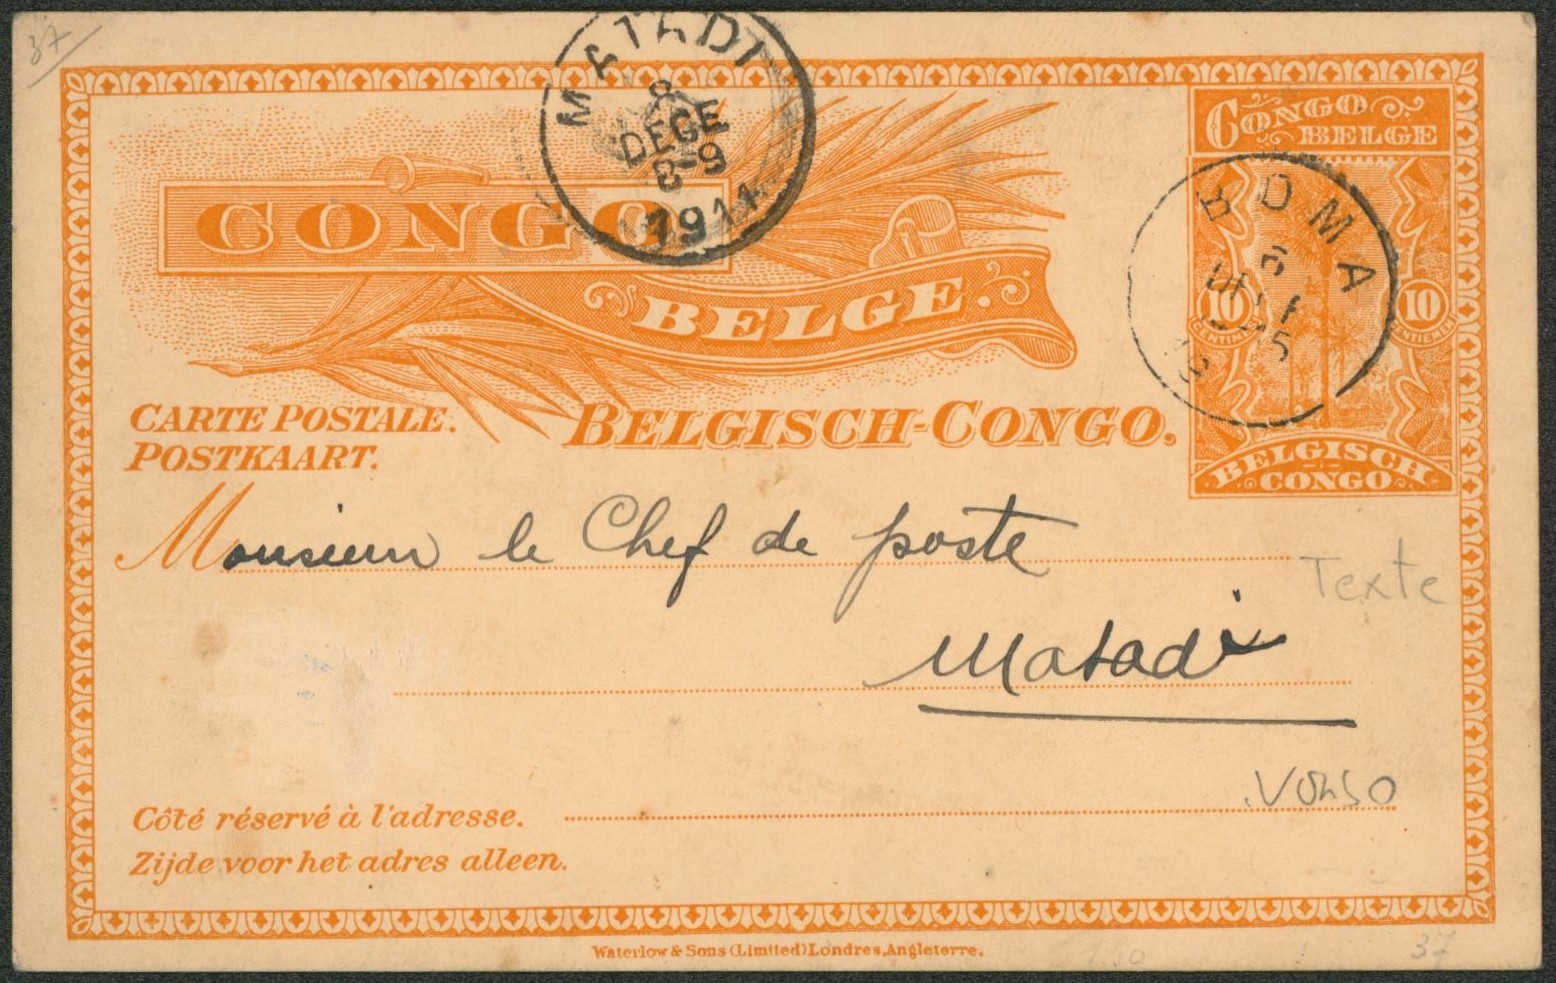 37
MATADI
8
DECE
8-9
1911
CONGO BELGE
CONGO
BELGE.
BOMA
6
10 CENTIMES
10 CENTIEMEN
BELGISCH
CONGO
CARTE POSTALE.
POSTKAART.
BELGISCH-CONGO.
Monsieur le Chef de poste
Texte
Matadi
Verso
Côté réservé à l'adresse.
Zijde voor het adres alleen.
Waterlow & Sons (Limited) Londres, Angleterre.
37